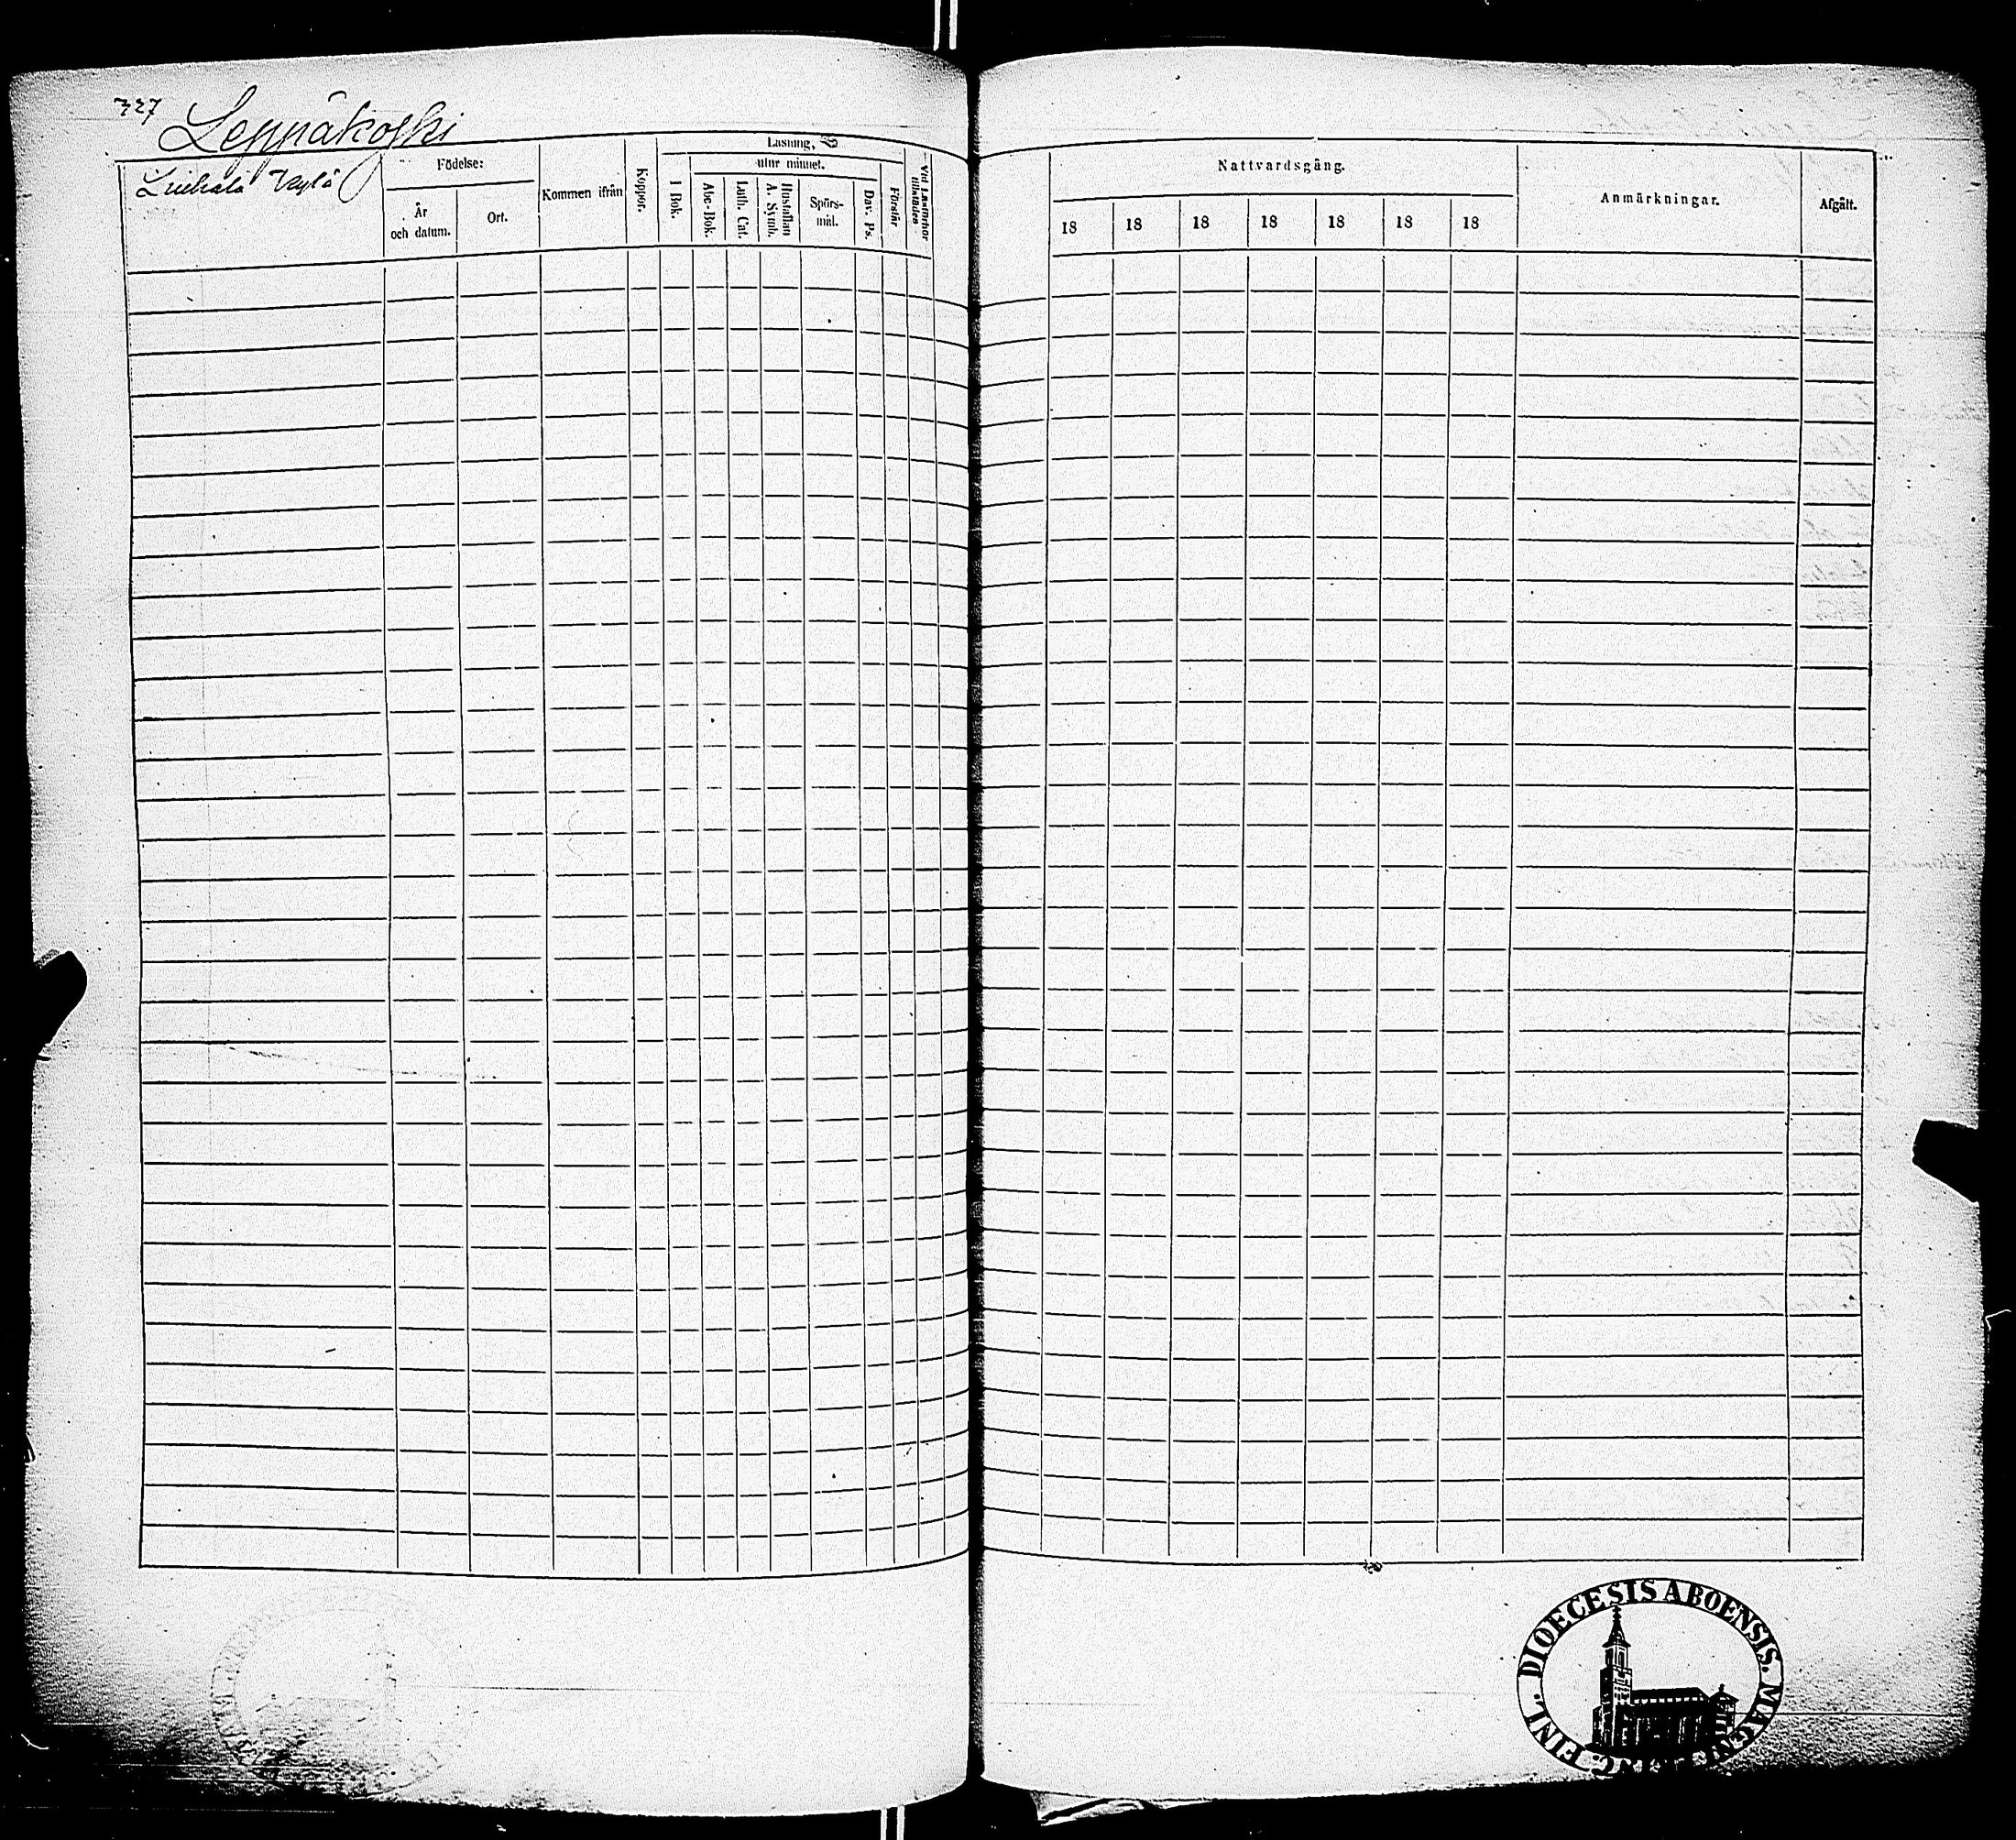 727 Leppäkoski
Födelse:
År
och datum.
Ort.
Kommen ifrån
Koppor.
Läsning,
utur minnet.
I Bok.
Abc-Bok.
Luth. Cat.
Hustaflan
A. Symb.
Spörs-
mål.
Dav. Ps.
Förstår
Vid Läsförhör
tillstädes
Nattvardsgång.
18 18 18 18 18 18 18
Anmärkningar.
Afgått.
DIOECESIS ABOENSIS. MAGN. FINL.